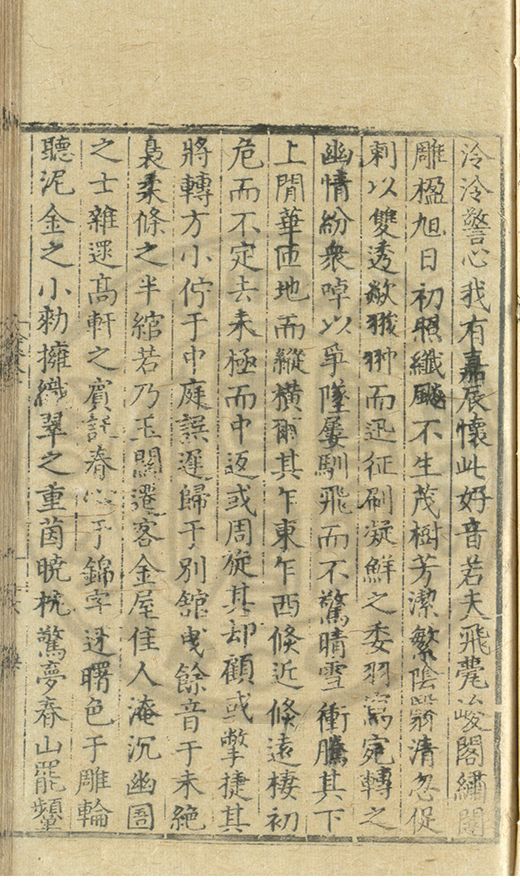 泠泠警心我有嘉辰懷此好音若夫飛甍峻閣繡闥
雕楹旭日初照纖飇不生茂樹芳潔繁陰翳清忽促
剌以雙透欻翀而迅征刷凝鮮之委羽寫宛轉之
幽情紛衆啅以爭墜屢馴飛而不驚晴雪衝騰其下
上閒華匝地而縱横爾其乍東乍西倐近倐遠棲初
危而不定去未極而中返或周旋其却顧或撆捷其
將轉方小佇于中庭誤遲歸于别舘曳餘音于未絶
裊柔條之半綰若乃玉關遷客金屋佳人淹沉幽圄
之士雜遝髙軒之賓託春心于錦字迓曙色于雕輪
聽泥金之小勑擁織翠之重茵曉枕驚夢春山罷顰